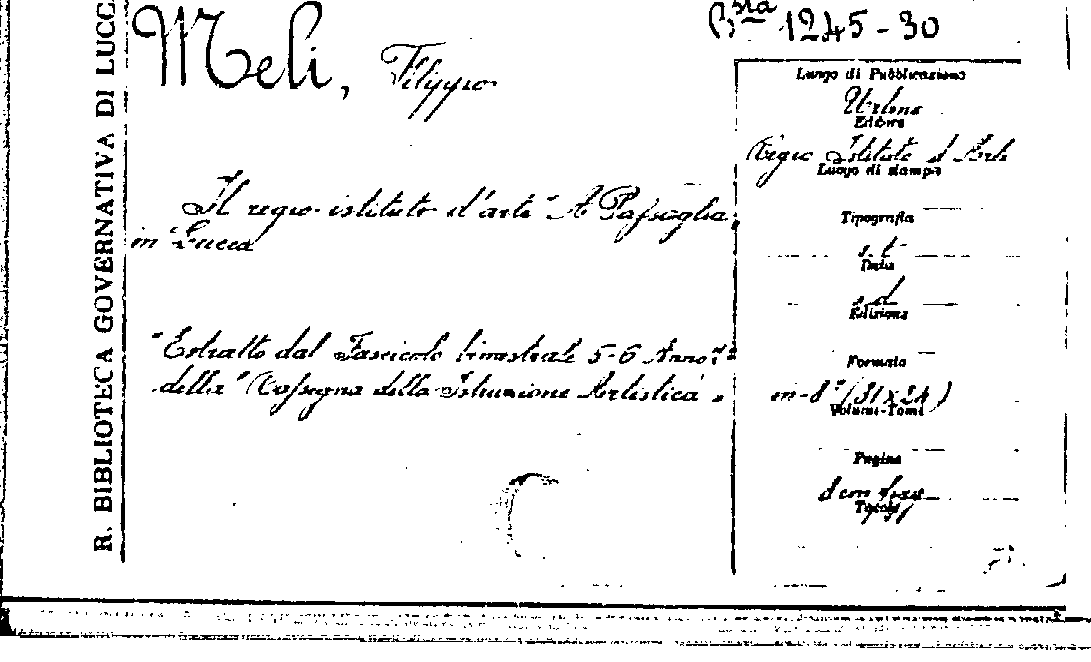 R. BIBLIOTECA GOVERNATIVA DI LUCC
Meli, Filippo
Bsta 1245-30
Il regio istituto d'arte "A Passaglia"
in Lucca
"Estratto dal Fascicolo bimestrale 5-6 Anno
della "Rassegna della Istruzione Artistica".
Luogo di Pubblicazione
Urbino
Editore
Regio Istituto d'Arte
Luogo di stampa
Tipografia
s.t
Data
s.d
Edizione
Formato
in-8° (31x24)
Volumi-Tomi
Pagine
8 con
Tavole